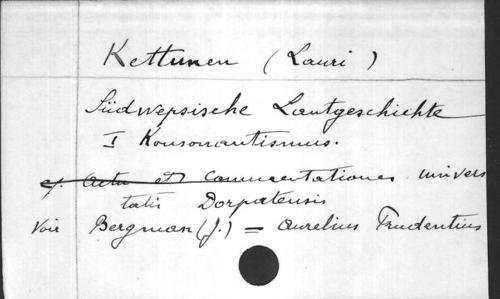 Kettunen (Lauri)
Südwepsische Lautgeschichte
I Konsonantismus.
cf. Acta et Commentationes univers
tatis Dorpatensis
Voir Bergman (J.) = Aurelius Prudentius